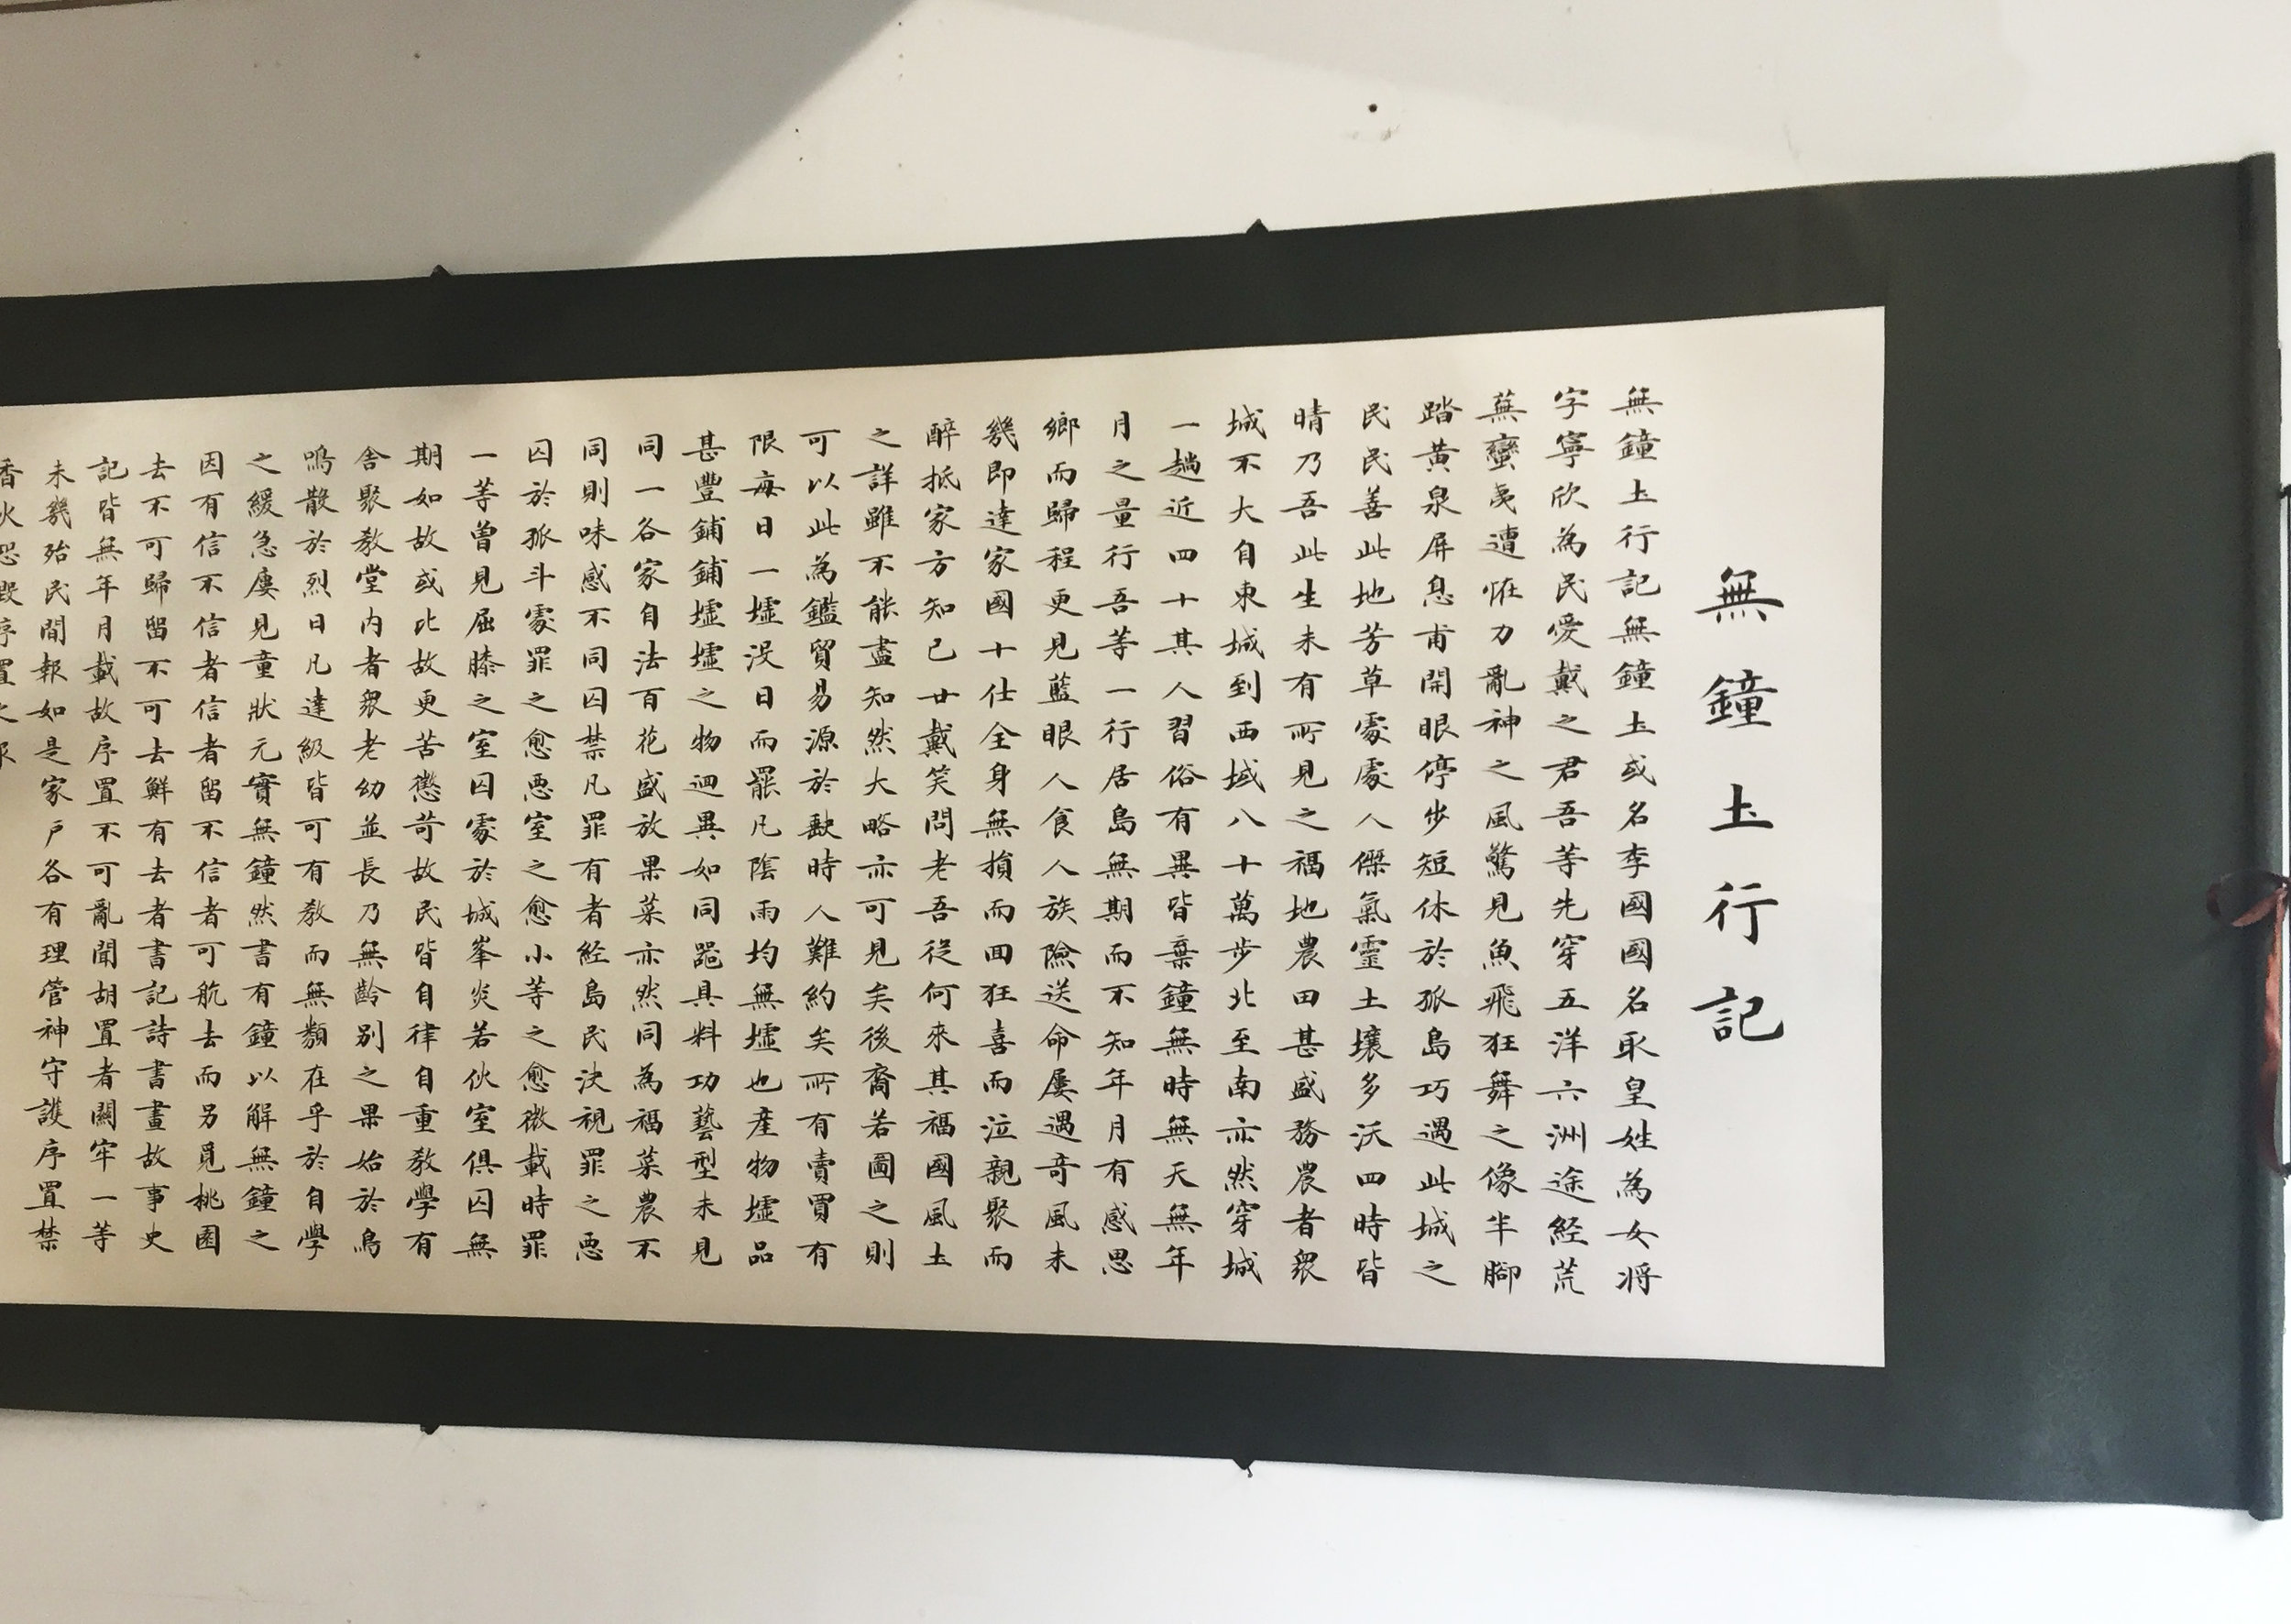 無鐘土行記
無鐘土行記無鐘土或名李國國名取皇姓為女将
字寧欣為民愛戴之君吾等先穿五洋六洲途経荒
蕪蠻夷遭恠力亂神之風驚見魚飛狂舞之像半腳
踏黃泉屏息甫開眼停步短休於孤島巧遇此城之
民民善此地芳草處處人傑氣靈土壤多沃四時皆
晴乃吾此生未有所見之福地農田甚盛務農者衆
城不大自東城到西域八十萬步北至南亦然穿城
一趟近四十其人習俗有異皆棄鐘無時無天無年
月之量行吾等一行居島無期而不知年月有感思
鄉而歸程更見藍眼人食人族險送命屢遇奇風未
幾即達家國十仕全身無損而回狂喜而泣親聚而
醉抵家方知已廿戴笑問老吾從何來其福國風土
之詳雖不能盡知然大略亦可見矣後裔若圖之則
可以此為鑑貿易源於歃時人難約矣所有賣買有
限每日一墟没日而罷凡陰雨均無墟也産物墟品
甚豐鋪鋪墟墟之物迥異如同器具料功藝型未見
同一各家自法百花盛放果菜亦然同為福菜農不
同則味感不同囚禁凡罪有者經島民決視罪之悪
囚於孤斗處罪之愈悪室之愈小等之愈微載時罪
一等曾見屈膝之室囚處於城峯炎若伙室俱囚無
期如故或比故更苦懲苛故民皆自律自重教學有
舍聚教堂内者衆老幼並長乃無齡別之果始於鳥
鳴散於烈日凡達級皆可有教而無類在乎於自學
之緩急屢見童狀元實無鐘然書有鐘以解無鐘之
因有信不信者信者留不信者可航去而另覓桃園
去不可歸留不可去鮮有去者書記詩書畫故事史
記皆無年月載故序置不可亂聞胡置者關牢一等
未幾殆民間報如是家戶各有理管神守護序置禁